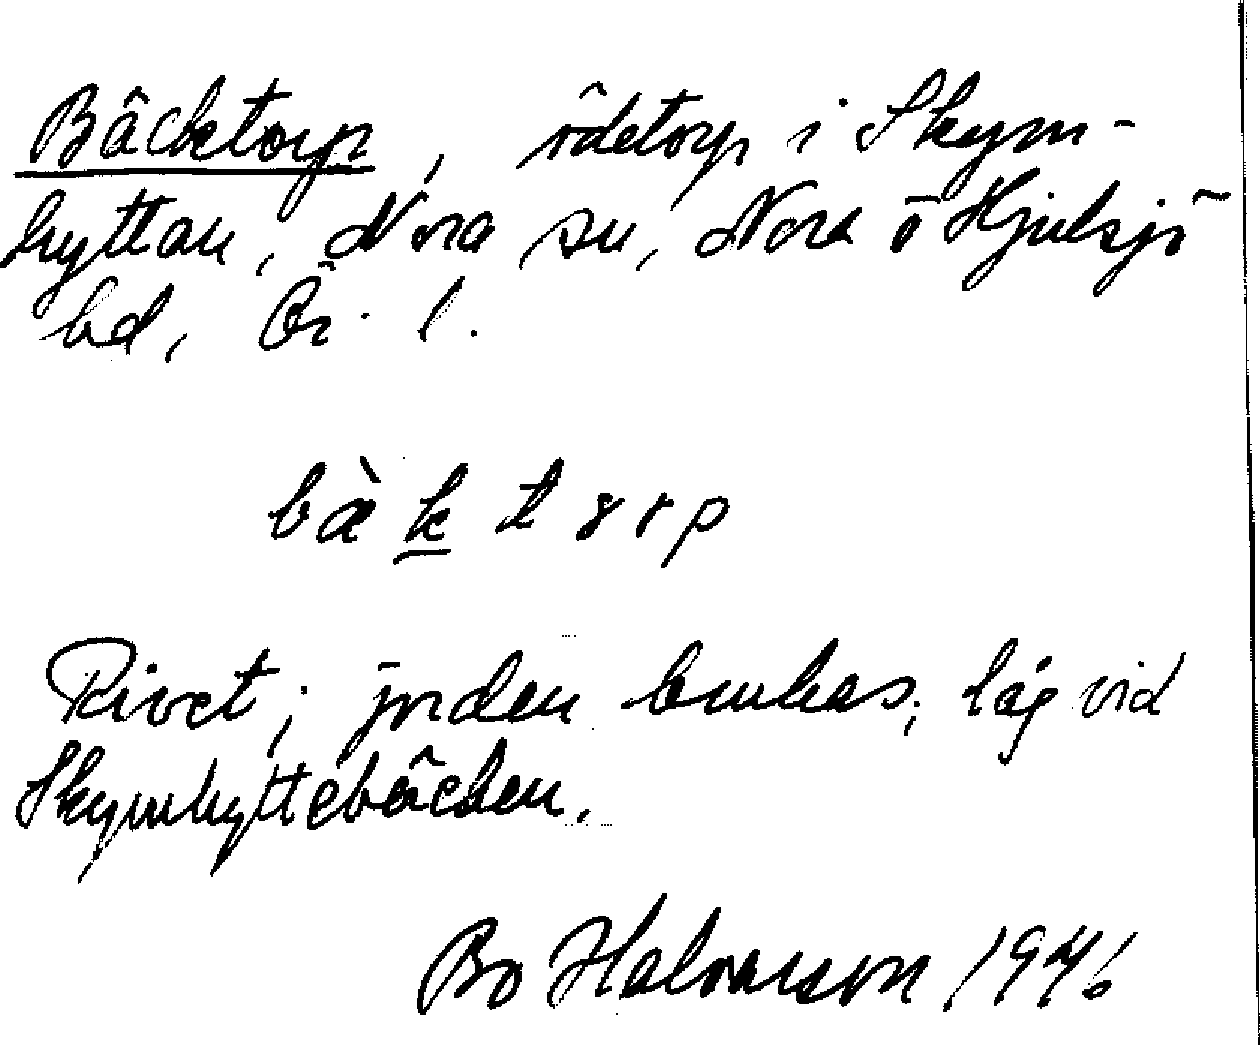 Bäcktorp, ödetorp i Skym-
hyttan, Nora sn, Nora o Hjulsjö
bd, Ör. l.
bæ̀k̲t8rp
Rivet; jorden brukas; låg vid
Skymhyttebäcken.
Bo Halvarson 1946